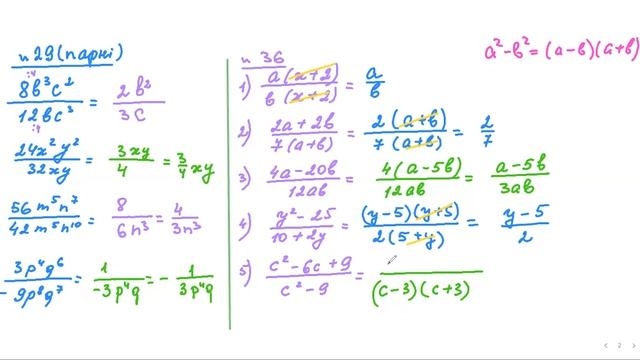 n 29 (парні)
8b³c²/12bc³ = 2b²/3c
:4
:4
24x²y²/32xy = 3xy/4 = 3/4 xy
56m⁵n⁷/42m⁵n¹⁰ = 8/6n³ = 4/3n³
3p⁴q⁶/-9p⁸q⁷ = 1/-3p⁴q = - 1/3p⁴q
n 36
1) a(x+2)/b(x+2) = a/b
2) 2a+2b/7(a+b) = 2(a+b)/7(a+b) = 2/7
3) 4a-20b/12ab = 4(a-5b)/12ab = a-5b/3ab
4) y²-25/10+2y = (y-5)(y+5)/2(5+y) = y-5/2
5) c²-6c+9/c²-9 = /(c-3)(c+3)
a²-b²=(a-b)(a+b)
2